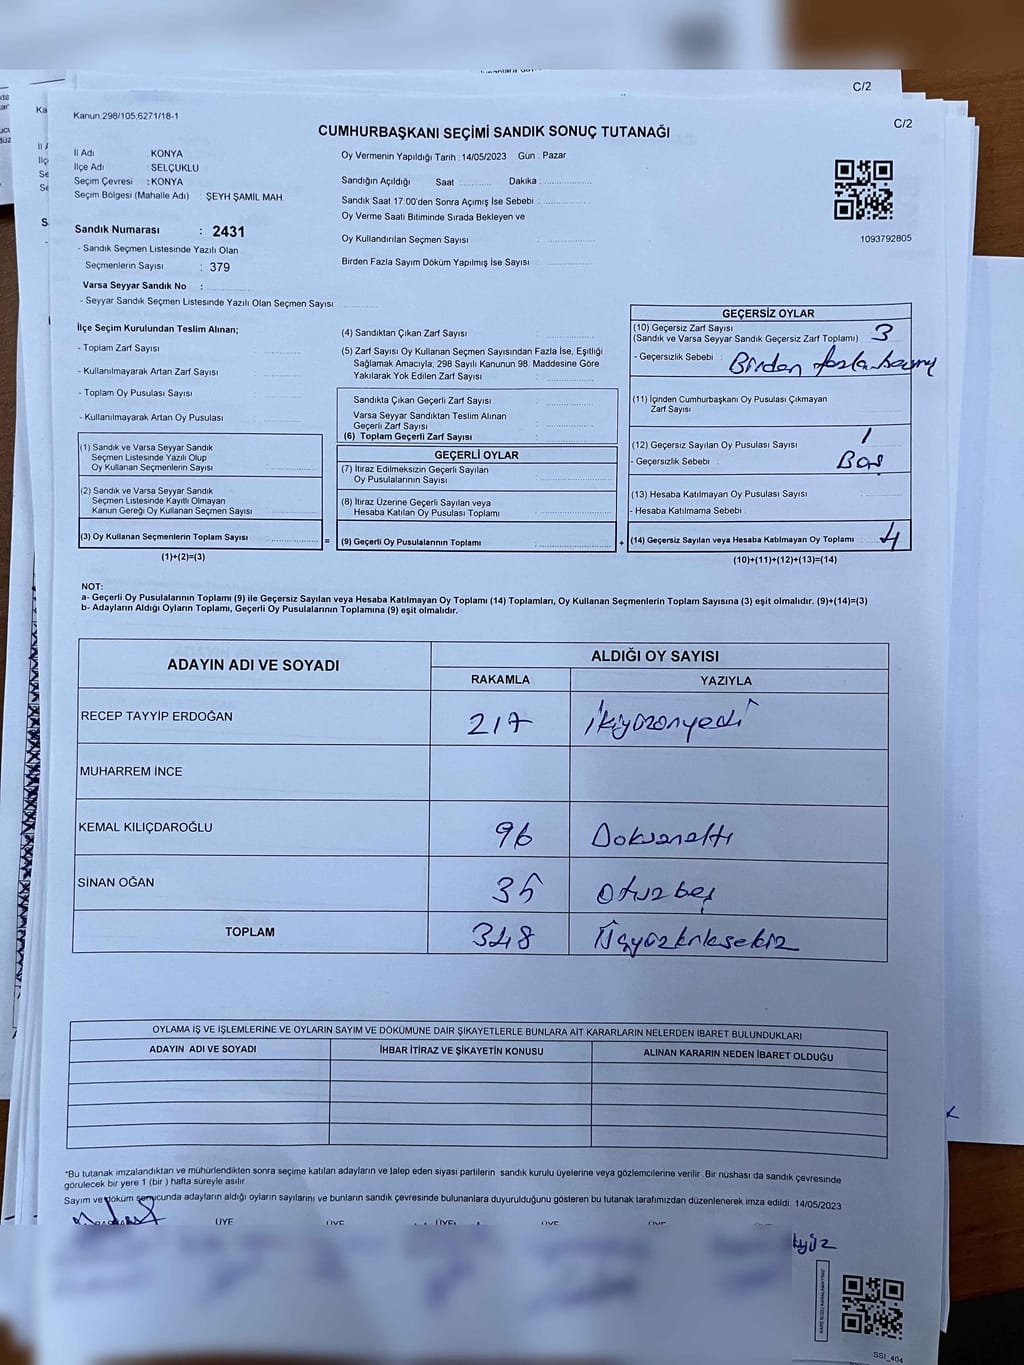 C/2
Kanun:298/105;6271/18-1
C/2
CUMHURBAŞKANI SEÇİMİ SANDIK SONUÇ TUTANAĞI
İl Adı KONYA
İlçe Adı : SELÇUKLU
Seçim Çevresi : KONYA
Seçim Bölgesi (Mahalle Adı) : ŞEYH ŞAMİL MAH.
Sandık Numarası : 2431
- Sandık Seçmen Listesinde Yazılı Olan
Seçmenlerin Sayısı : 379
Varsa Seyyar Sandık No :
- Seyyar Sandık Seçmen Listesinde Yazılı Olan Seçmen Sayısı
Oy Vermenin Yapıldığı Tarih : 14/05/2023 Gün : Pazar
Sandığın Açıldığı Saat Dakika :
Sandık Saat 17:00'den Sonra Açımış İse Sebebi :
Oy Verme Saati Bitiminde Sırada Bekleyen ve
Oy Kullandırılan Seçmen Sayısı :
Birden Fazla Sayım Döküm Yapılmış İse Sayısı :
1093792805
İlçe Seçim Kurulundan Teslim Alınan;
- Toplam Zarf Sayısı :
- Kullanılmayarak Artan Zarf Sayısı :
- Toplam Oy Pusulası Sayısı :
- Kullanılmayarak Artan Oy Pusulası :
(1) Sandık ve Varsa Seyyar Sandık
Seçmen Listesinde Yazılı Olup
Oy Kullanan Seçmenlerin Sayısı :
(2) Sandık ve Varsa Seyyar Sandık
Seçmen Listesinde Kayıtlı Olmayan
Kanun Gereği Oy Kullanan Seçmen Sayısı :
(3) Oy Kullanan Seçmenlerin Toplam Sayısı =
(1)+(2)=(3)
(4) Sandıktan Çıkan Zarf Sayısı :
(5) Zarf Sayısı Oy Kullanan Seçmen Sayısından Fazla İse, Eşitliği
Sağlamak Amacıyla; 298 Sayılı Kanunun 98. Maddesine Göre
Yakılarak Yok Edilen Zarf Sayısı :
Sandıkta Çıkan Geçerli Zarf Sayısı :
Varsa Seyyar Sandıktan Teslim Alınan
Geçerli Zarf Sayısı :
(6) Toplam Geçerli Zarf Sayısı :
GEÇERLİ OYLAR
(7) İtiraz Edilmeksizin Geçerli Sayılan
Oy Pusulalarının Sayısı :
(8) İtiraz Üzerine Geçerli Sayılan veya
Hesaba Katılan Oy Pusulası Toplamı :
(9) Geçerli Oy Pusulalarının Toplamı : +
GEÇERSİZ OYLAR
(10) Geçersiz Zarf Sayısı
(Sandık ve Varsa Seyyar Sandık Geçersiz Zarf Toplamı) : 3
- Geçersizlik Sebebi : Birden fazla
(11) İçinden Cumhurbaşkanı Oy Pusulası Çıkmayan
Zarf Sayısı
(12) Geçersiz Sayılan Oy Pusulası Sayısı : 1
- Geçersizlik Sebebi : Boş
(13) Hesaba Katılmayan Oy Pusulası Sayısı :
- Hesaba Katılmama Sebebi
(14) Geçersiz Sayılan veya Hesaba Katılmayan Oy Toplamı : 4
(10)+(11)+(12)+(13)=(14)
NOT:
a- Geçerli Oy Pusulalarının Toplamı (9) ile Geçersiz Sayılan veya Hesaba Katılmayan Oy Toplamı (14) Toplamları, Oy Kullanan Seçmenlerin Toplam Sayısına (3) eşit olmalıdır. (9)+(14)=(3)
b- Adayların Aldığı Oyların Toplamı, Geçerli Oy Pusulalarının Toplamına (9) eşit olmalıdır.
ADAYIN ADI VE SOYADI ALDIĞI OY SAYISI
RAKAMLA YAZIYLA
RECEP TAYYİP ERDOĞAN 217 ikiyüzonyedi
MUHARREM İNCE
KEMAL KILIÇDAROĞLU 96 Doksanaltı
SİNAN OĞAN 35 otuzbeş
TOPLAM 348 Üçyüzkırksekiz
OYLAMA İŞ VE İŞLEMLERİNE VE OYLARIN SAYIM VE DÖKÜMÜNE DAİR ŞİKAYETLERLE BUNLARA AİT KARARLARIN NELERDEN İBARET BULUNDUKLARI
ADAYIN ADI VE SOYADI İHBAR İTİRAZ VE ŞİKAYETİN KONUSU ALINAN KARARIN NEDEN İBARET OLDUĞU
*Bu tutanak imzalandıktan ve mühürlendikten sonra seçime katılan adayların ve talep eden siyasi partilerin sandık kurulu üyelerine veya gözlemcilerine verilir. Bir nüshası da sandık çevresinde
görülecek bir yere 1 (bir) hafta süreyle asılır.
Sayım ve döküm sonucunda adayların aldığı oyların sayılarını ve bunların sandık çevresinde bulunanlara duyurulduğunu gösteren bu tutanak tarafımızdan düzenlenerek imza edildi. 14/05/2023
ÜYE ÜYE ÜYE ÜYE ÜYE ÜYE
SSİ_404